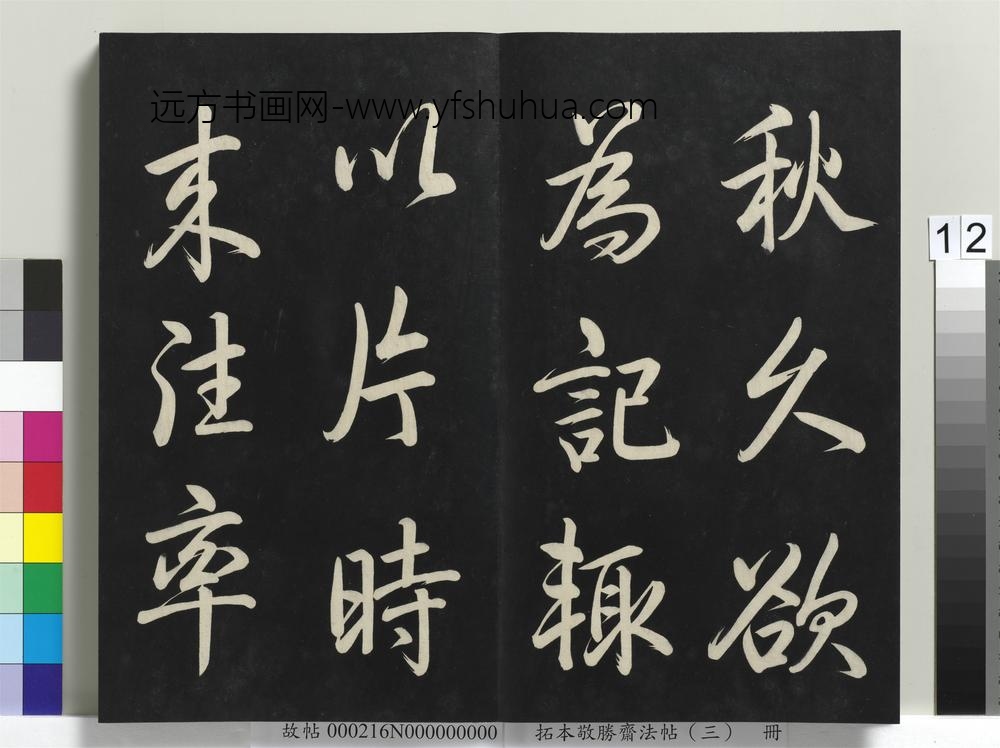 远方书画网-www.yfshuhua.com
秋久欲
為記輙
以片時
来往率
12
故帖 000216N000000000 拓本敬勝齋法帖（三） 冊